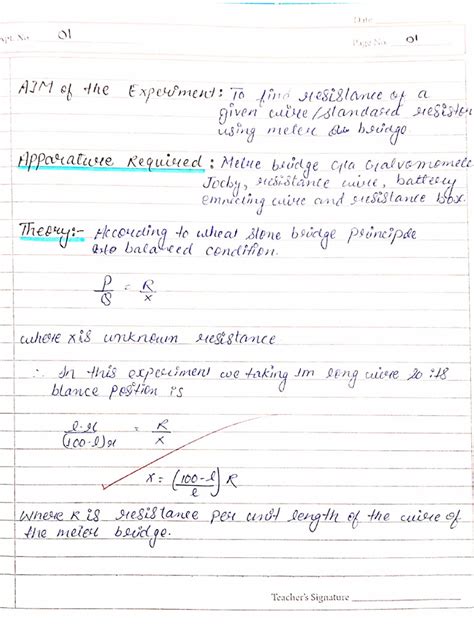 Date
Expt. No. 01
Page No. 01
AIM of the Experiment: To find resistance of a
given wire/standard resistor
using meter bridge
Apparature Required: Metre bridge Galvamomete
Jocky, resistance wire, battery
cnnicting wire and resistance box.
Theory:- According to wheat stone bridge principle
balanced condition.
P/Q = R/x
where x is unknown resistance
∴ In this experiment we taking 1m long wire so its
blance position is
l.r/(100-l)r = R/x
x = (100-l/l) R
Where R is resistance per unit length of the wire of
the meter bridge.
Teacher's Signature